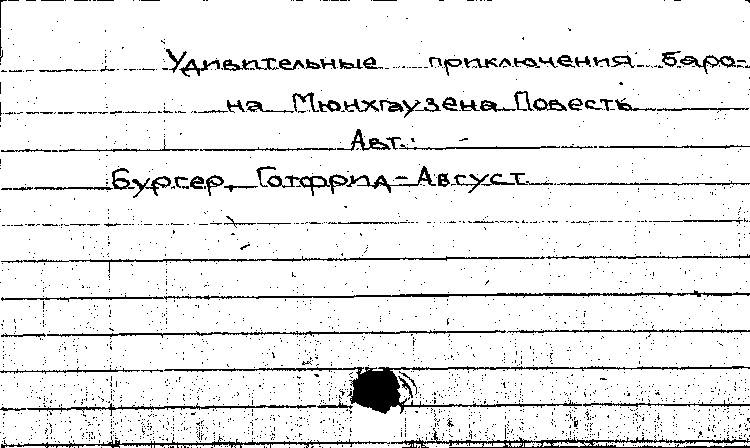 Удивительные приключения баро-
на Мюнхгаузена Повесть.
Авт.: -
Бургер, Готфрид-Август.